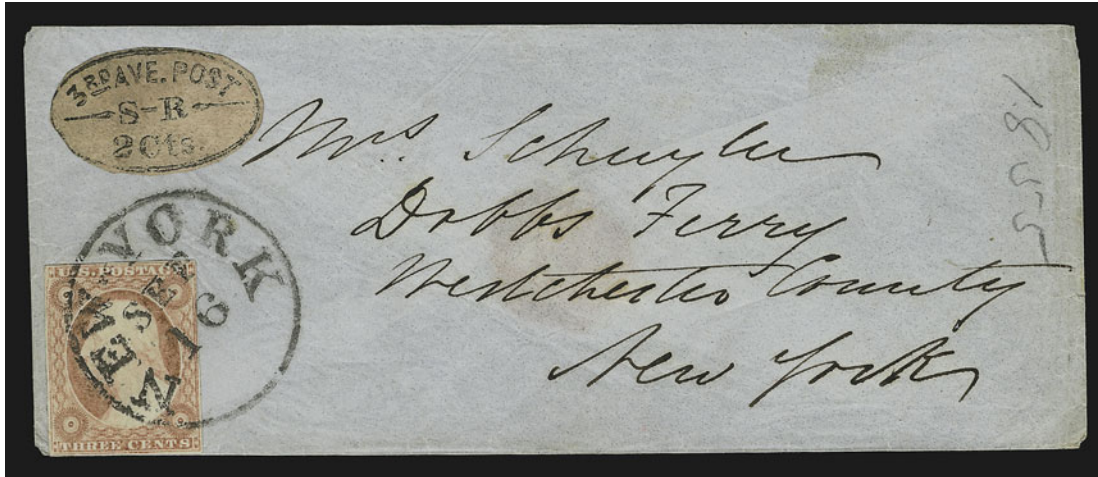 3RD AVE. POST
S-R
2 Cts.
Mrs. Schuyler
Dobbs Ferry
Westchester County
New York
1855
NEW YORK
SEP
16
U.S. POSTAGE
THREE CENTS